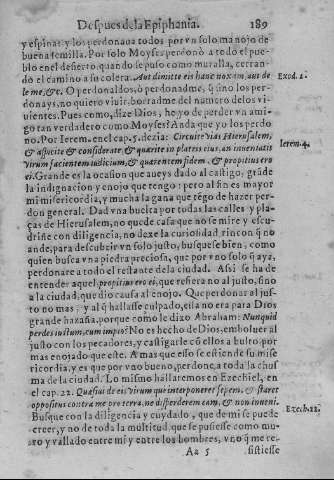 Despues de la Epiphania. 189
y espinas y los perdonaua todos por vn solo manojo de
buena semilla. Por solo Moyses perdonò a todo el pue-
blo en el desierto, quando se puso como muralla, cerran-
do el camino a su colera. Aut dimitte eis hanc noxam, aut de
le me, &c. O perdonaldos, ò perdonadme, q̃ sino los per-
donays, no quiero viuir, borradme del numero de los vi-
uientes. Pues como, dize Dios, he yo de perder vn ami-
go tan verdadero como Moyses? Anda que yo los perdo
no. Por Ierem. en el cap. 5. dezia: Circuite vias Hierusalem,
& aspicite & considerate, & quærite in plateis eius, an inueniatis
virum facientem iudicium, & quærentem fidem. & propitius ero
ei. Grande es la ocasion que aueys dado al castigo, grãde
la indignacion y enojo que tengo: pero al fin es mayor
mi misericordia, y mucha la gana que tẽgo de hazer per-
don general. Dad vna buelta por todas las calles y pla-
ças de Hierusalem, no quede casa que no se mire y escu-
driñe con diligencia, no dexe la curiosidad rincon q̃ no
ande, para descubrir vn solo justo, busquese bien, como
quien busca vna piedra preciosa, que por vno solo q̃ aya,
perdonare a todo el restante de la ciudad. Assi se ha de
entender aquel, propitius ero ei, que refiera no al justo, sino
a la ciudad, que dio causa al enojo. Que perdonar al jus-
to no mas, y al q̃ hallasse culpado, ella no era para Dios
grande hazaña, porque como le dixo Abraham: Nunquid
perdes iustum, cum impio? No es hecho de Dios, emboluer al
justo con los pecadores, y castigarle cõ ellos a bulto, por
mas enojado que este. A mas que esso se estiende su mise
ricordia, y es que por vno bueno, perdone a toda la chus
ma de la ciudad. Lo mismo hallaremos en Ezechiel, en
el cap. 22. Quæsiui de eis virum qui interponeret sepem, & staret
oppositus contra me pro terra, ne disperderem eam, & non inueni.
Busque con la diligencia y cuydado, que de mi se puede
creer, y no de toda la multitud, que se pusiesse como mu-
ro y vallado entre mi y entre los hombres, vno q̃ me re-
Aa 5 sistiesse
Exod. 2.
Ierem. 4.
Ezech. 22.